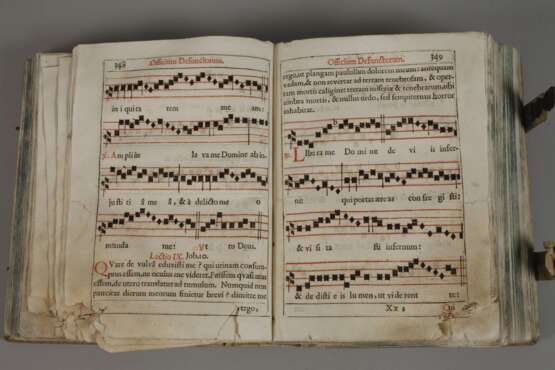 348
Officium Defunctorum.
in i qui ta tem me am:
℣. Am pli us la va me Domine ab in-
justi tiâ me â, & à delicto me o
munda me: Ut tu Deus.
Lectio IX. Job. 10.
QVare de vulvâ eduxisti me? qui utinam consum-
ptus essem, ne oculus me videret. Fuissem quasi non
essem, de utero translatus ad tumulum. Numquid non
paucitas dierum meorum finietur brevi? dimitte me
ergo,
Officium Defunctorum.
349
ergo, ut plangam paululum dolorem meum: antequam
vadam, & non revertar ad terram tenebrosam, & oper-
tam mortis caligine: terram miseriæ & tenebrarum, ubi
umbra mortis, & nullus ordo, sed sempiternus horror
inhabitat.
℟. LIbera me Domine de vi is infer-
ni qui portas æreas con fre gi sti:
& vi si ta sti infernum:
& de disti e is lu men, ut vi de rent te:
Xx 2
Qui